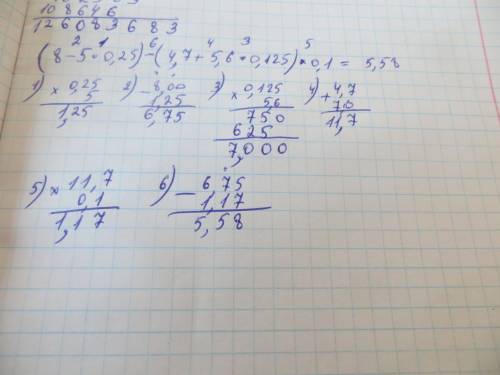 108646
12608 3 6 8 3
2 1 6 4 3 5
(8-5·0,25)-(4,7+5,6·0,125)·0,1= 5,58
1) × 0,25 2) - 8,00 3) × 0,125 4) + 4,7
5 1,25 5,6 7,0
1,25 6,75 750 11,7
625
7,000
5) × 11,7 6) - 6,75
0,1 1,17
1,17 5,58